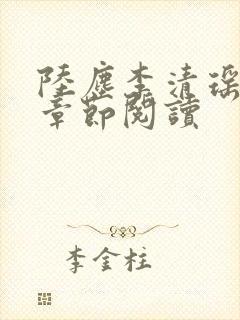 陸塵李清瑤
章節閱讀
李金柱